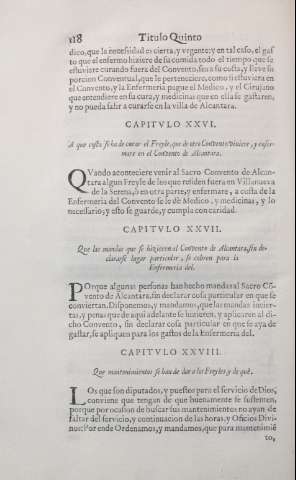 118 Titulo Quinto
dico, que la necessidad es cierta, y vrgente: y en tal caso, el gas
to que el enfermo hiziere de su comida todo el tiempo que se
estuuiere curando fuera del Convento, sea a su costa, y lleve su
porcion Conventual, que le perteneciere, como si estuviera en
el Convento, y la Enfermeria pague el Medico, y el Cirujano
que entendiere en su cura, y medicinas que en ella se gastaren,
y no pueda salir a curarse en la villa de Alcantara.
CAPITVLO XXVI.
A que costa se ha de curar el Freyle, que de otro Convento viniere, y enfer-
mare en el Convento de Alcantara.
QVando aconteciere venir al Sacro Convento de Alcan-
tara algun Freyle de los que residen fuera en Villanueva
de la Serena, ò en otra parte, y enfermare, a costa de la
Enfermeria del Convento se le dè Medico, y medicinas, y lo
necessario; y esto se guarde, y cumpla con caridad.
CAPITVLO XXVII.
Que las mandas que se hizieren al Convento de Alcantara, sin de-
clararse lugar particular, se cobren para la
Enfermeria del.
POrque algunas personas han hecho mandas al Sacro Cõ-
vento de Alcantara, sin declarar cosa particular en que se
conviertan. Disponemos, y mandamos, que las mandas incier-
tas, y penas que de aqui adelante se hizieren, y aplicaren al di-
cho Convento, sin declarar cosa particular en que se aya de
gastar, se apliquen para los gastos de la Enfermeria del.
CAPITVLO XXVIII.
Que mantenimientos se han de dar a los Freyles, y de què.
LOs que son diputados, y puestos para el servicio de Dios,
conviene que tengan de que buenamente se sustenten,
porque por ocasion de buscar sus mantenimientos no ayan de
faltar del servicio, y continuacion de las horas, y Oficios Divi-
nos: Por ende Ordenamos, y mandamos, que para mantenimiẽ
to,